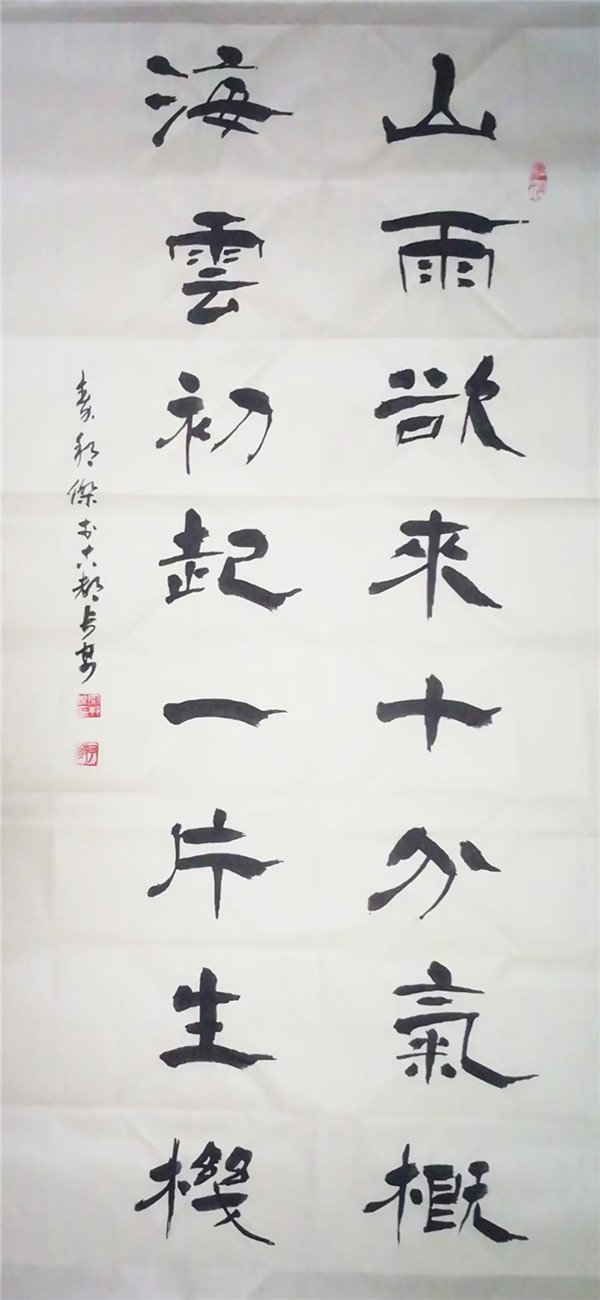 山雨欲來十分氣概
海雲初起一片生機
傑於古都長安